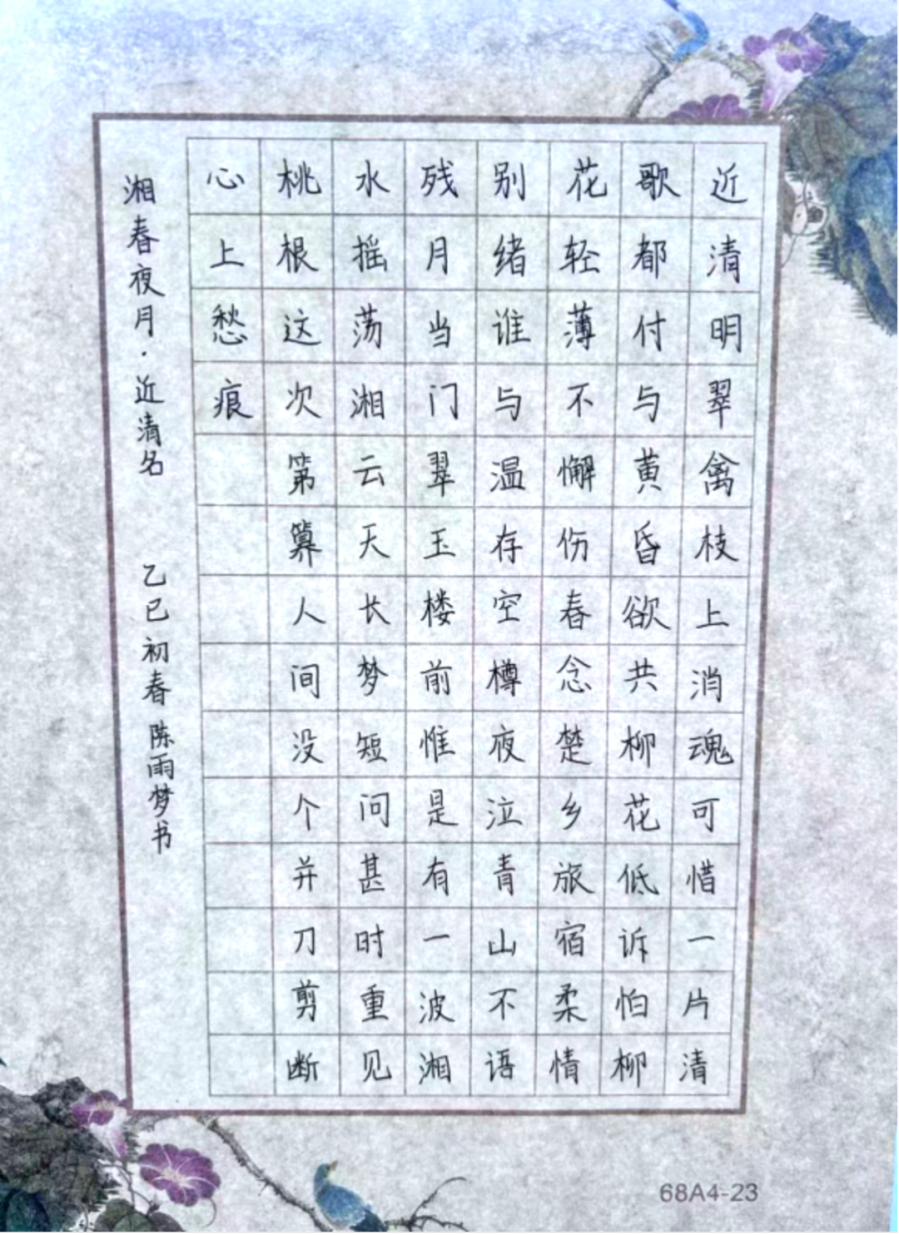 近清明翠禽枝上消魂可惜一片清
歌都付与黄昏欲共柳花低诉怕柳
花轻薄不懈伤春念楚乡旅宿柔情
别绪谁与温存空樽夜泣青山不语
残月当门翠玉楼前惟是有一波湘
水摇荡湘云天长梦短问甚时重见
桃根这次第算人间没个并刀剪断
心上愁痕
湘春夜月·近清名
乙巳初春 陈雨梦书
68A4-23